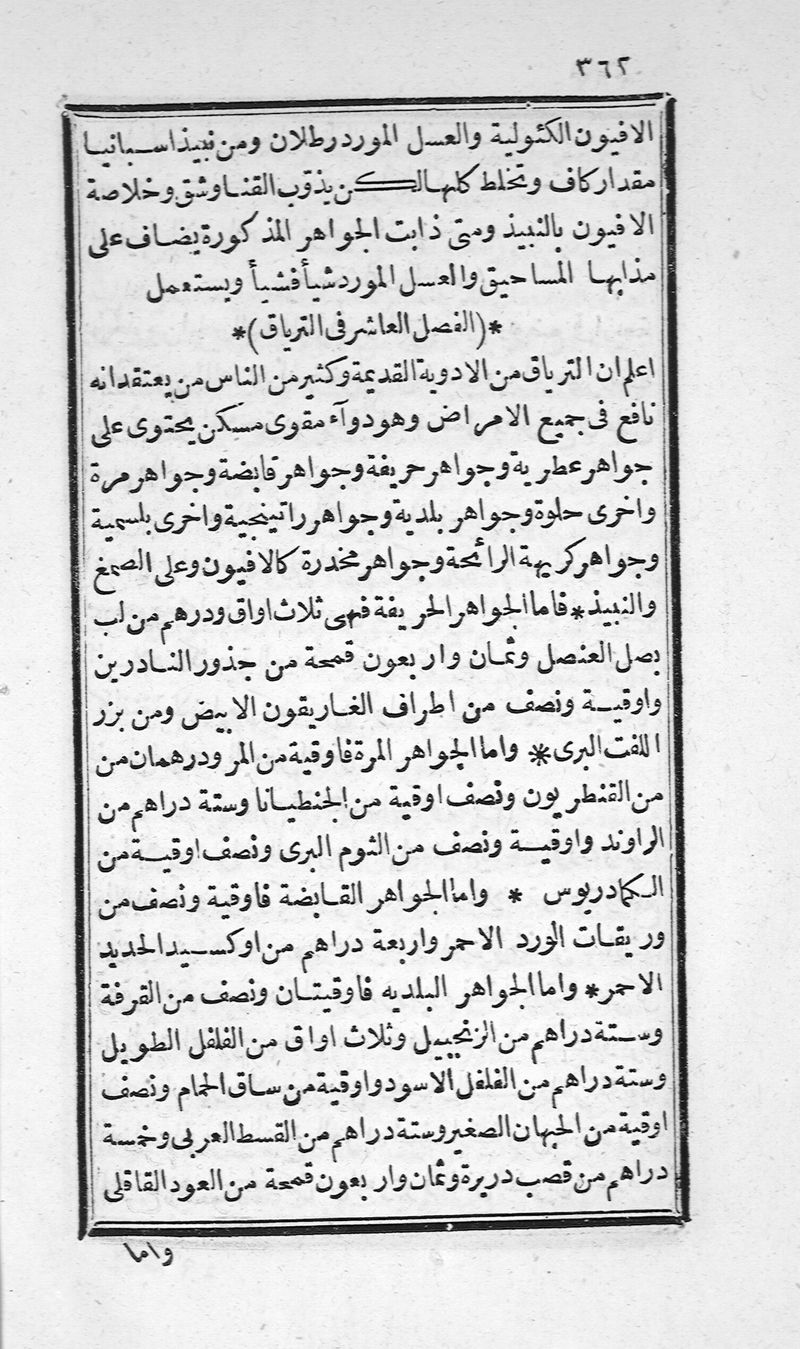 ٣٦٢
الافيون الكئولية والعسل المورد رطلان ومن نبيذ اسبانيا
مقدار كاف وتخلط كلها لكن يذوّب القنا وشق وخلاصة
الافيون بالنبيذ ومتى ذابت الجواهر المذكورة يضاف على
مذابها المساحيق والعسل المورد شيأ فشيأ ويستعمل
*(الفصل العاشر فى الترياق)*
اعلم ان الترياق من الادوية القديمة وكثير من الناس من يعتقد انه
نافع فى جميع الامراض وهو دوآء مقوى مسكن يحتوى على
جواهر عطرية وجواهر حريفة وجواهر قابضة وجواهر مرة
واخرى حلوة وجواهر بلدية وجواهر راتينجية واخرى بلسمية
وجواهر كريهة الرائحة وجواهر مخدرة كالافيون وعلى الصمغ
والنبيذ * فاما الجواهر الحريفة فهى ثلاث اواق ودرهم من لب
بصل العنصل وثمان واربعون قمحة من جذور النادرين
واوقية ونصف من اطراف الغاريقون الابيض ومن بزر
اللفت البرى * واما الجواهر المرة فاوقية من المر ودرهمان من
من القنطريون ونصف اوقية من الجنطيانا وستة دراهم من
الراوند واوقية ونصف من الثوم البرى ونصف اوقية من
الكمادريوس * واما الجواهر القابضة فاوقية ونصف من
وريقات الورد الاحمر واربعة دراهم من اوكسيد الحديد
الاحمر * واما الجواهر البلديه فاوقيتان ونصف من القرفة
وستة دراهم من الزنجبيل وثلاث اواق من الفلفل الطويل
وستة دراهم من الفلفل الاسود واوقية من ساق الحمام ونصف
اوقية من الحبهان الصغير وستة دراهم من القسط العربى وخمسة
دراهم من قصب دريرة وثمان واربعون قمحة من العود القاقلى
واما